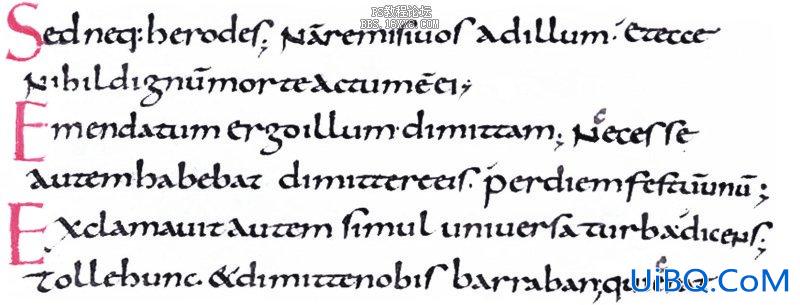 PS教程论坛
BBS.16XX8.COM
Sed neq: herodes; Nā remisi uos ad illum. Et ecce
Nihil dignū morte actum ē ei;
Emendatum ergo illum dimittam; Necesse
autem habebat dimittere eis. per diem festū unū;
Exclamauit autem simul uniuersa turba dicens;
Tolle hunc. & dimitte nobis barraban;
UiBQ.CoM